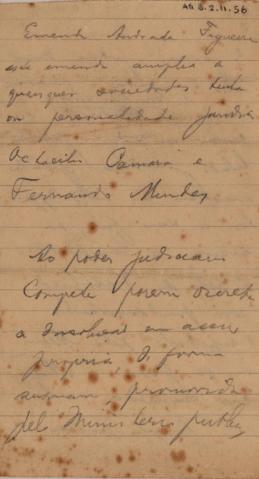 AG 8.2.11.56
Emenda Andrade Figueira
esta emenda amplia a
quaesquer sociedades tenha
ou personalidade juridica
Octacilio Camara e
Fernando Mendes
Ao poder judiciario
Compete porem decretar
a dissolucao em accao
propria, de forma
summaria, promovida
pelo Ministerio publico